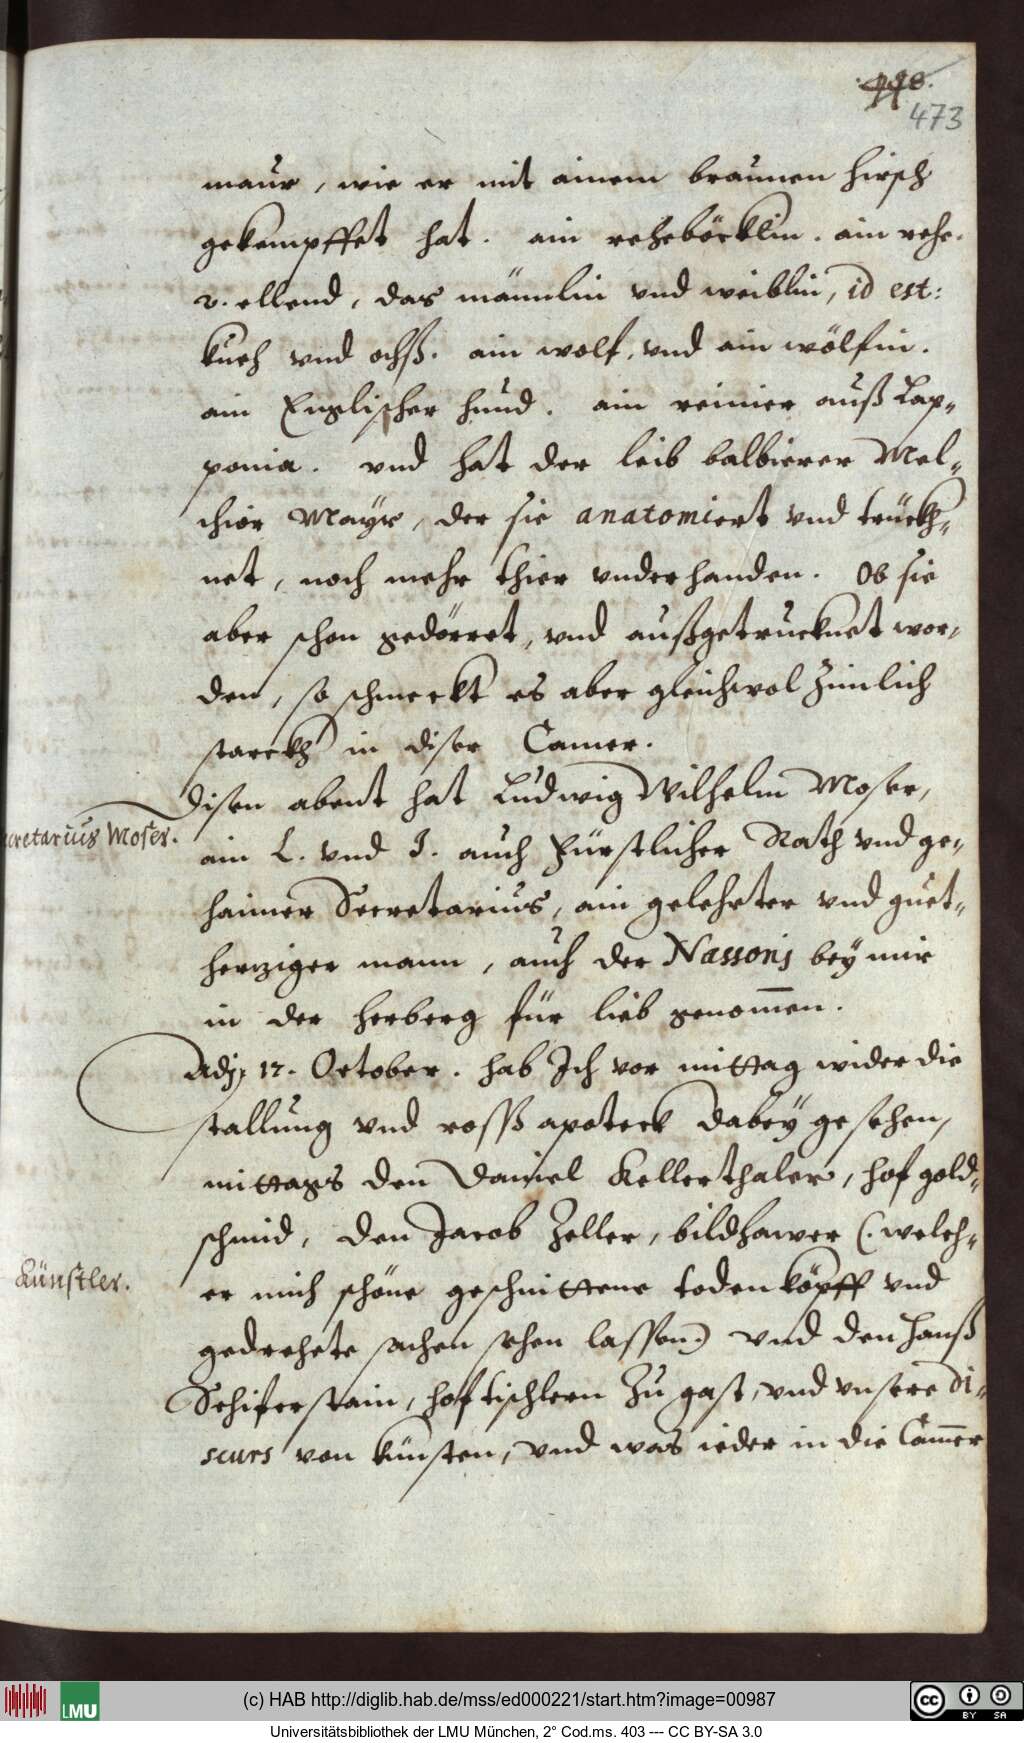 473
maur, wie er mit ainem braunen hirsch
gekempffet hat. ain reheböcklin. ain rehe.
2. ellend, das männlin vnd weiblin, id est:
kueh vnd ochß. ain wolf, vnd ain wölfin.
ain Englischer hund. ain reinier auß Lap-
ponia. vnd hat der leib balbierer Mel-
chior Mayr, der sie anatomiert vnd trückh-
net, noch mehr thier vnderhanden. Ob sie
aber schon gedörret, vnd außgetrucknet wor-
den, so schmeckt es aber gleichwol zimlich
starckh in diser Camer.
Disen abent hat Ludwig Wilhelm Moser,
cretarius Moser.
ain L. vnd J. auch Fürstlicher Rath vnd ge-
haimer Secretarius, ain gelehrter vnd guet-
hertziger mann, auch der Nassonj bey mir
in der herberg für lieb genom̅en.
Adj: 17. October. hab Jch vor mittag wider die
stallung vnd rosß apoteck dabey gesehen,
mittags den Daniel Kellerthaler, hof gold-
schmid, den Jacob Zeller, bildhawer (. welch-
Künstler.
er mich schöne geschnittene todenköpff vnd
gedrehete sachen sehen lassen) vnd den Hanß
Schiferstain, hoftischlern Zu gast, vnd vnsere di-
scurs von künsten, vnd was ieder in die Cam̅er
(c) HAB http://diglib.hab.de/mss/ed000221/start.htm?image=00987
LMU
Universitätsbibliothek der LMU München, 2° Cod.ms. 403 --- CC BY-SA 3.0
cc BY SA